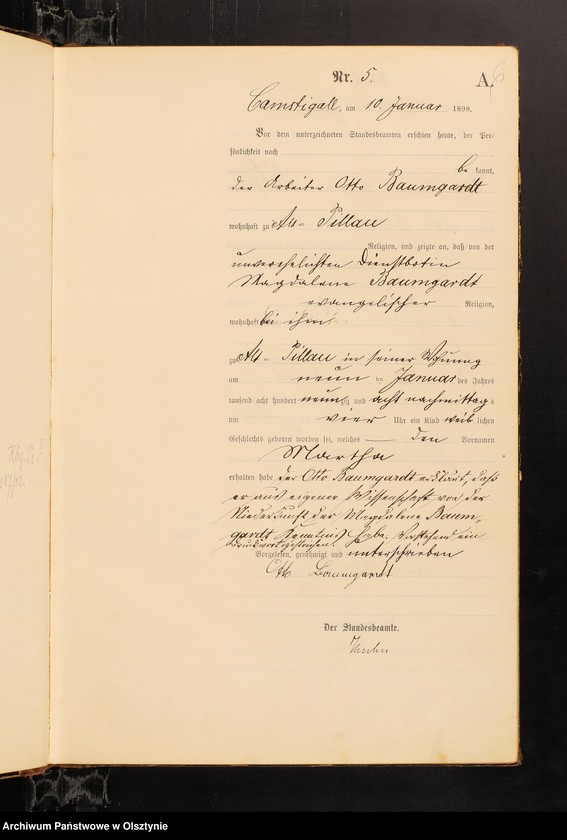 Nr. 5.
A.
Camstigall, am 10. Januar 1898.
Vor dem unterzeichneten Standesbeamten erschien heute, der Per-
sönlichkeit nach
be kannt,
der Arbeiter Otto Baumgardt
wohnhaft zu Alt-Pillau
Religion, und zeigte an, daß von der
unverehelichten Dienstbotin
Magdalene Baumgardt
evangelischer Religion,
wohnhaft bei ihm
zu Alt-Pillau in seiner Wohnung
am neun ten Januar des Jahres
tausend acht hundert neunzig und acht nachmittags
um vier Uhr ein Kind weib lichen
Geschlechts geboren worden sei, welches den Vornamen
Martha
erhalten habe der Otto Baumgardt erklärt, daß
er aus eigener Wissenschaft von der
Niederkunft der Magdalene Baum-
gardt Kenntniß habe. Vorstehend ein
Druckwort gestrichen.
Vorgelesen, genehmigt und unterschrieben
Otto Baumgardt
Der Standesbeamte.
Archiwum Państwowe w Olsztynie